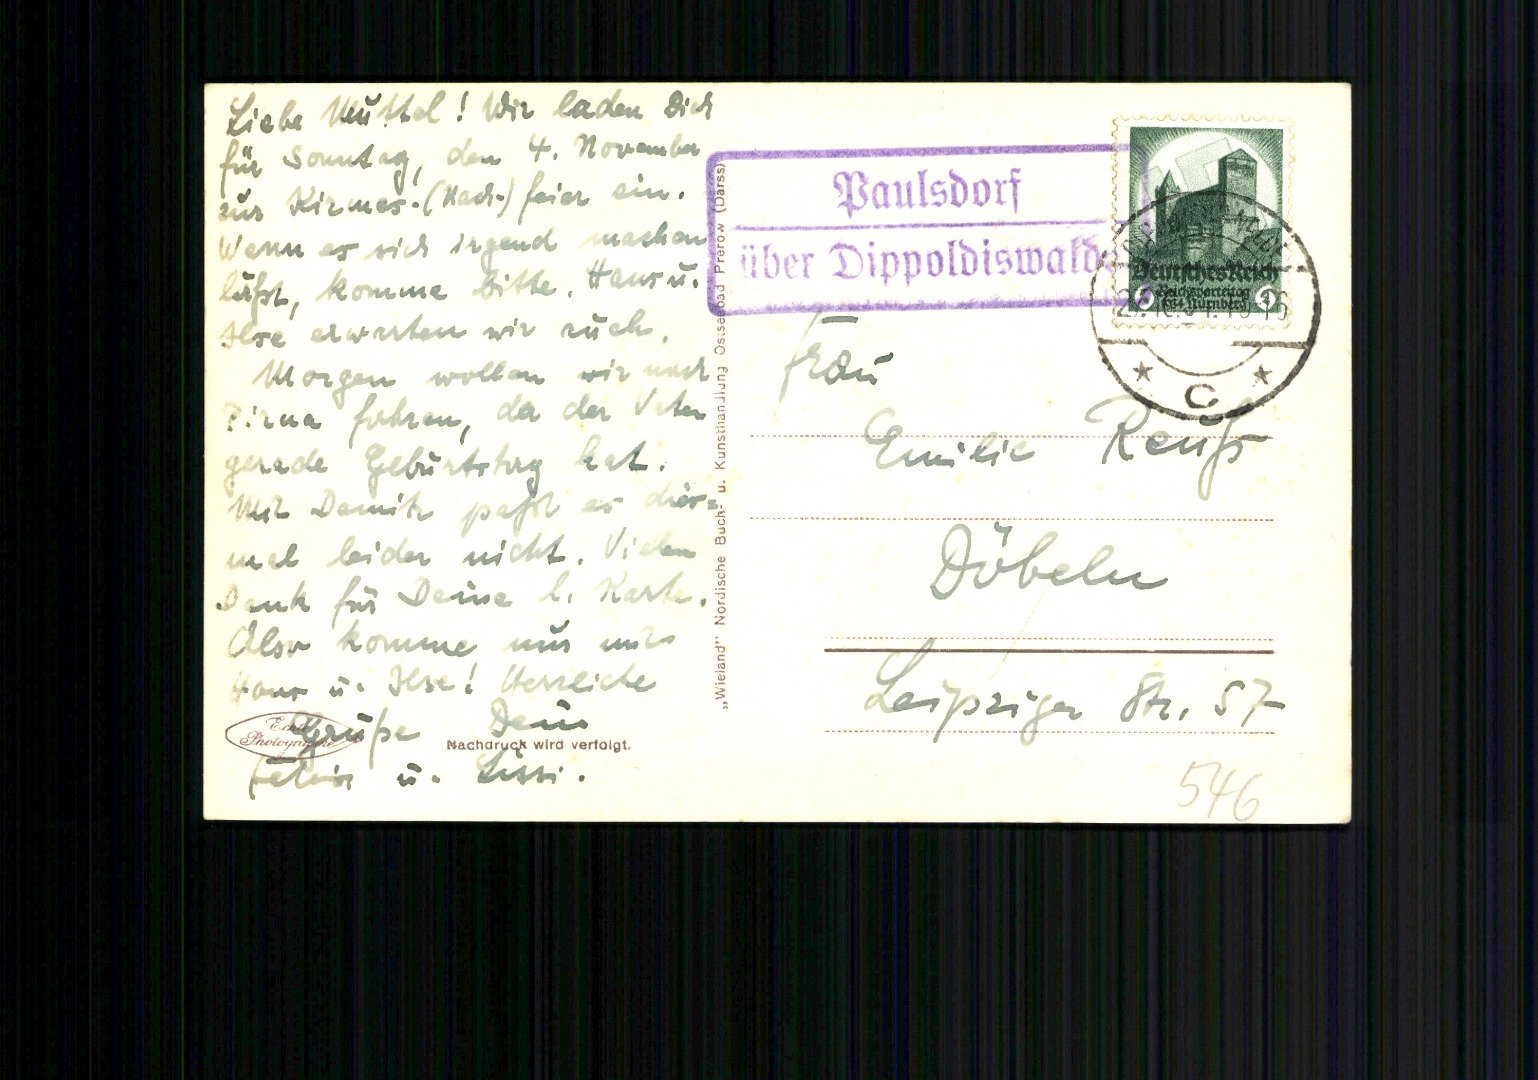 Liebe Muttel! Wir laden Dich
für Sonntag, den 4. November
zur Kirmes-(Nach-)feier ein.
Wenn es sich irgend machen
läßt, komme bitte. Hans u.
Ilse erwarten wir auch.
Morgen wollen wir nach
Pirna fahren, da der Vater
gerade Geburtstag hat.
Mit Demitz paßt es dies-
mal leider nicht. Vielen
Dank für Deine l. Karte.
Also komme nur mit
Hans u. Ilse! Herzliche
Grüße Deine
u. Lissi.
Echte
Photographie
Nachdruck wird verfolgt.
„Wieland" Nordische Buch- u. Kunsthandlung Ostseebad Prerow (Darss)
Paulsdorf
über Dippoldiswalde
Deutsches Reich
Reichsparteitag
1934 Nürnberg
C
Frau
Emilie Reuß
Döbeln
Leipziger Str. 57
546